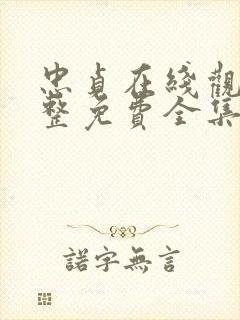 忠貞在綫觀
整免費全集
諾字無言